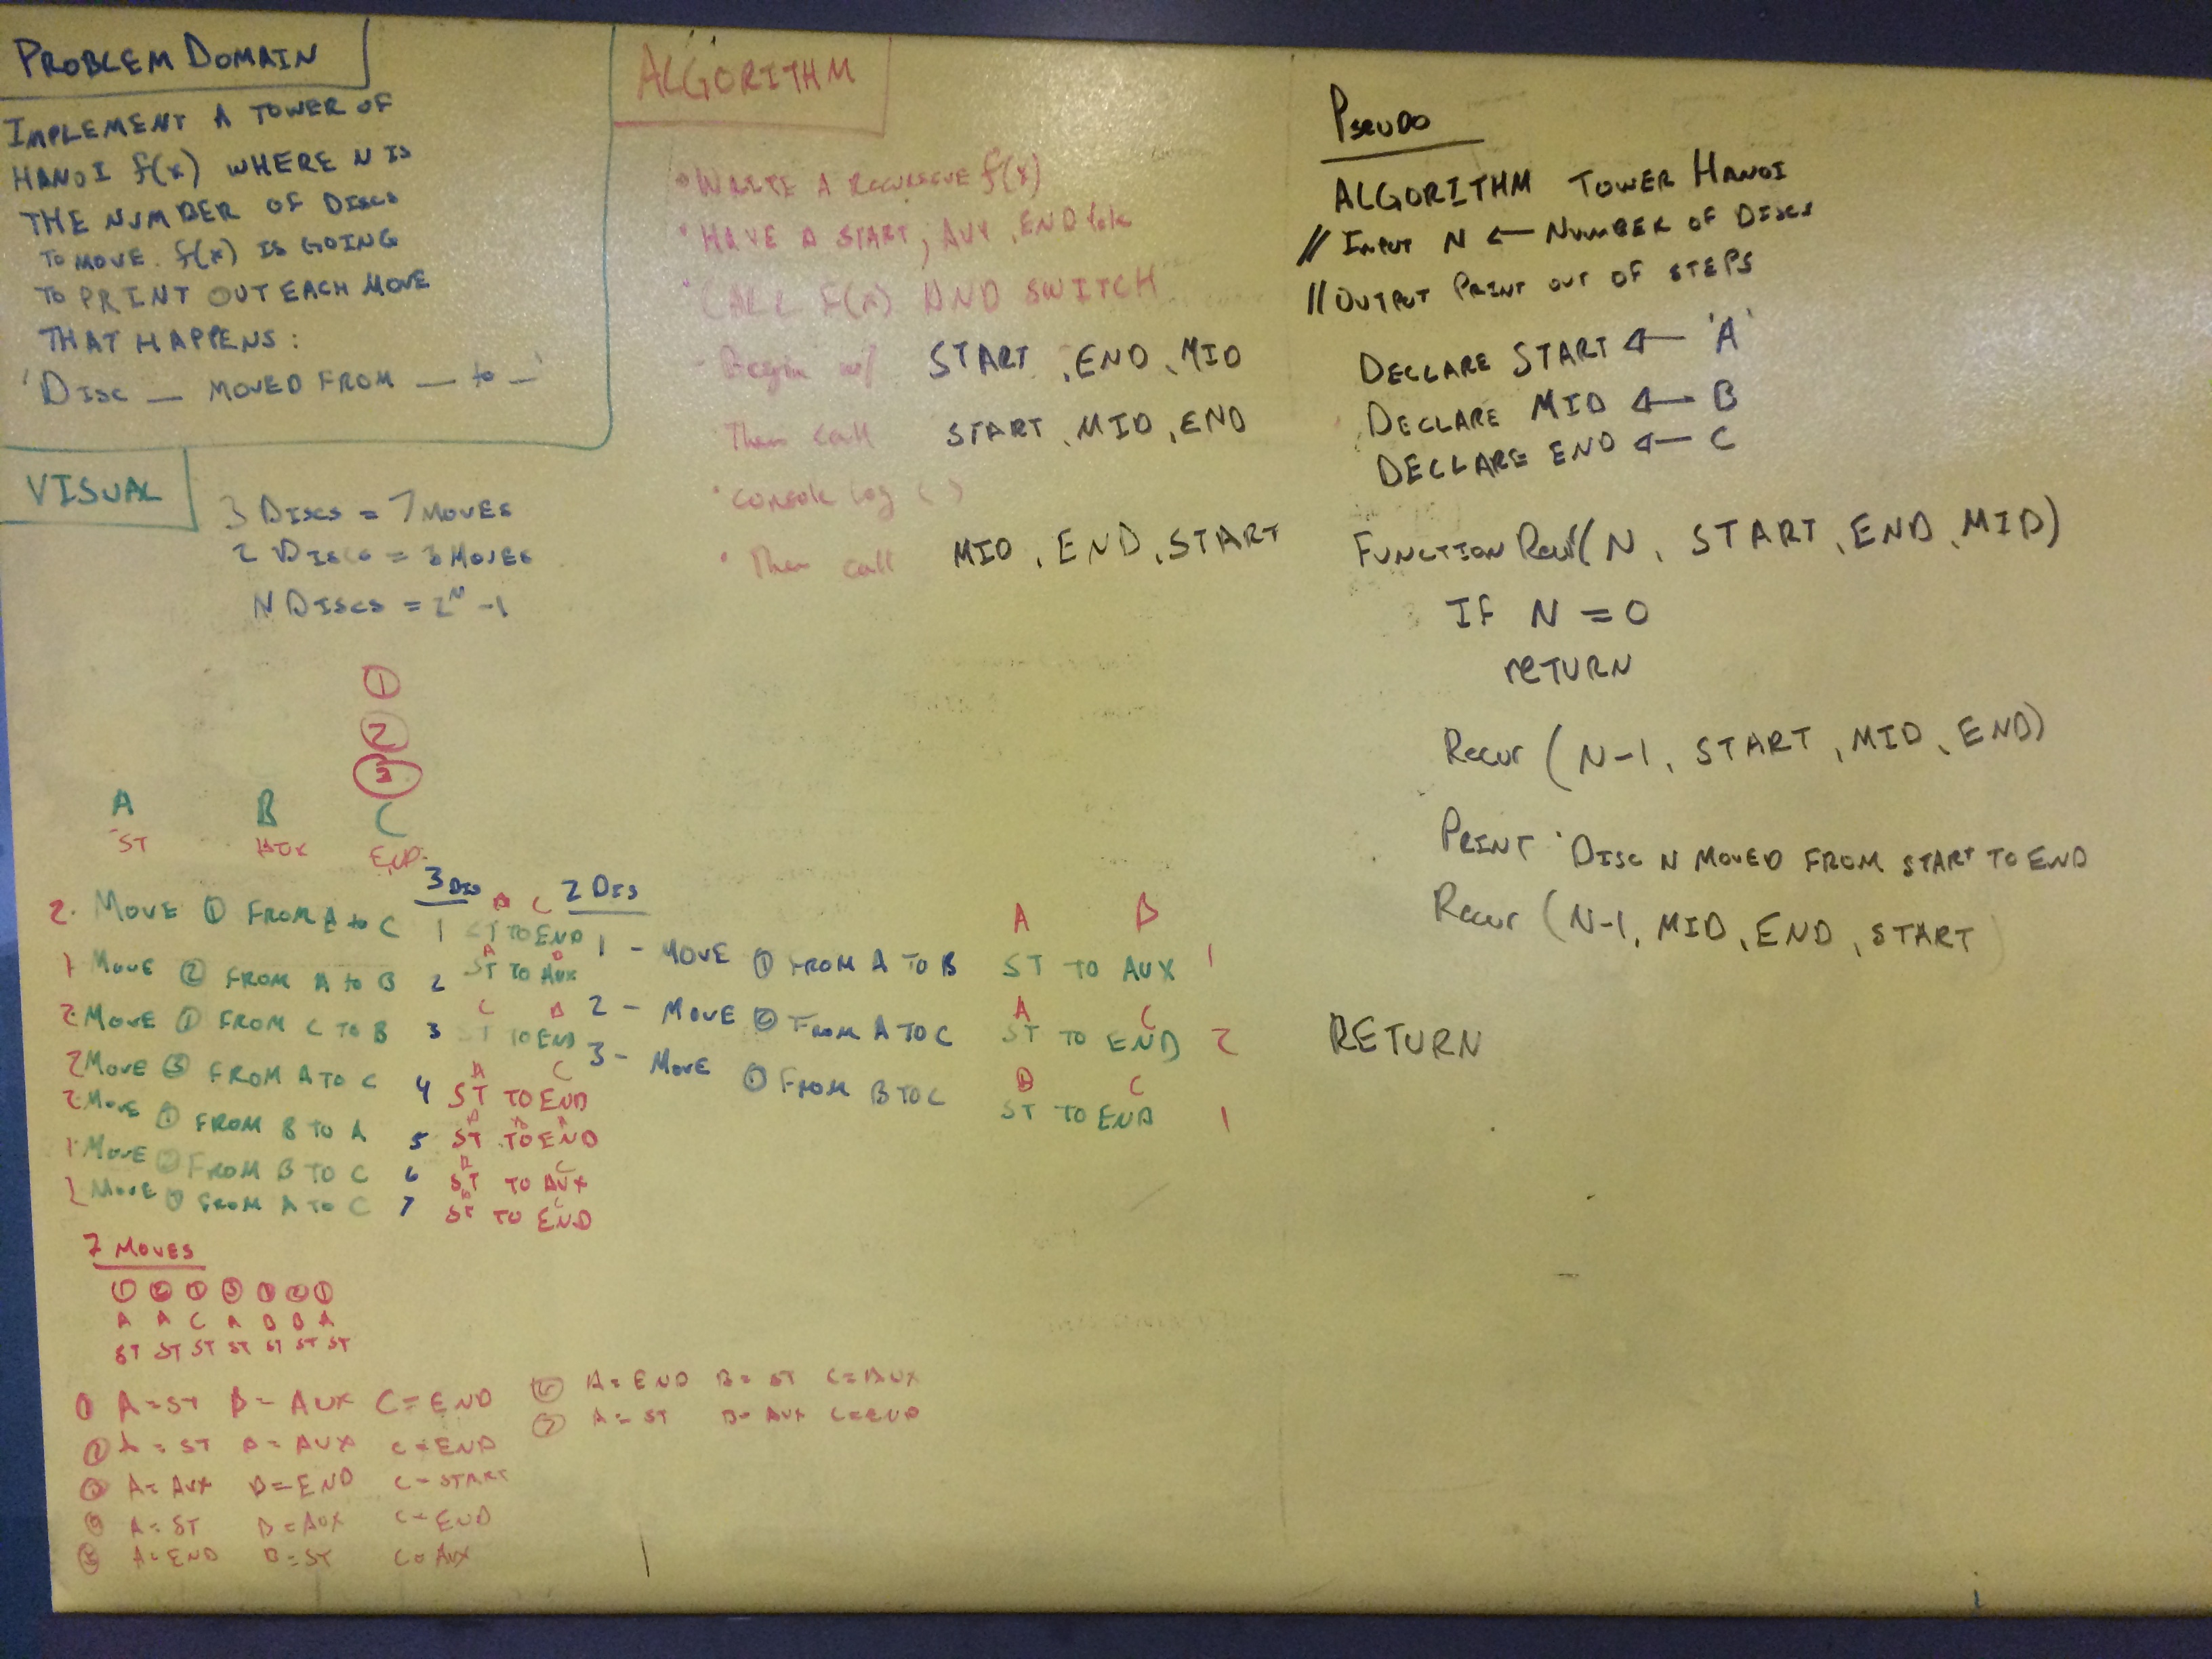 PROBLEM DOMAIN
IMPLEMENT A TOWER OF
HANOI f(x) WHERE N IS
THE NUMBER OF DISCS
TO MOVE. f(x) IS GOING
TO PRINT OUT EACH MOVE
THAT HAPPENS:
'DISC _ MOVED FROM _ to _'
VISUAL
3 DISCS = 7 MOVES
2 DISCS = 3 MOVES
N DISCS = 2^N - 1
1
2
3
A B C
ST AUX END
3 DIS
2. MOVE ① FROM A to C 1 ST TO END
1 MOVE ② FROM A to B 2 ST TO AUX
2. MOVE ① FROM C TO B 3 ST TO END
2 MOVE ③ FROM A TO C 4 ST TO END
2. MOVE ① FROM B TO A 5 ST TO END
1. MOVE ② FROM B TO C 6 ST TO AUX
MOVE ① FROM A TO C 7 ST TO END
2 DIS
A B
1 - MOVE ① FROM A TO B ST TO AUX 1
A C
2 - MOVE ② FROM A TO C ST TO END 2
B C
3 - MOVE ① FROM B TO C ST TO END 1
7 MOVES
① ② ① ③ ① ② ①
A A C A B B A
ST ST ST ST ST ST ST
① A = ST B = AUX C = END
② A = ST B = AUX C = END
③ A = AUX B = END C = START
④ A = ST B = AUX C = END
⑤ A = END B = ST C = AUX
⑥ A = END B = ST C = AUX
⑦ A = ST B = AUX C = END
ALGORITHM
• WRITE A f(x)
• HAVE A START, AUX, END
• CALL f(x) AND SWITCH
- Begin w/ START, END, MID
• Then call START, MID, END
• console log ( )
• Then call MID, END, START
PSEUDO
ALGORITHM TOWER HANOI
// INPUT N ← NUMBER OF DISCS
// OUTPUT PRINT OUT OF STEPS
DECLARE START ← 'A'
DECLARE MID ← B
DECLARE END ← C
FUNCTION Recur(N, START, END, MID)
IF N = 0
RETURN
Recur (N-1, START, MID, END)
PRINT 'DISC N MOVED FROM START TO END
Recur (N-1, MID, END, START)
RETURN